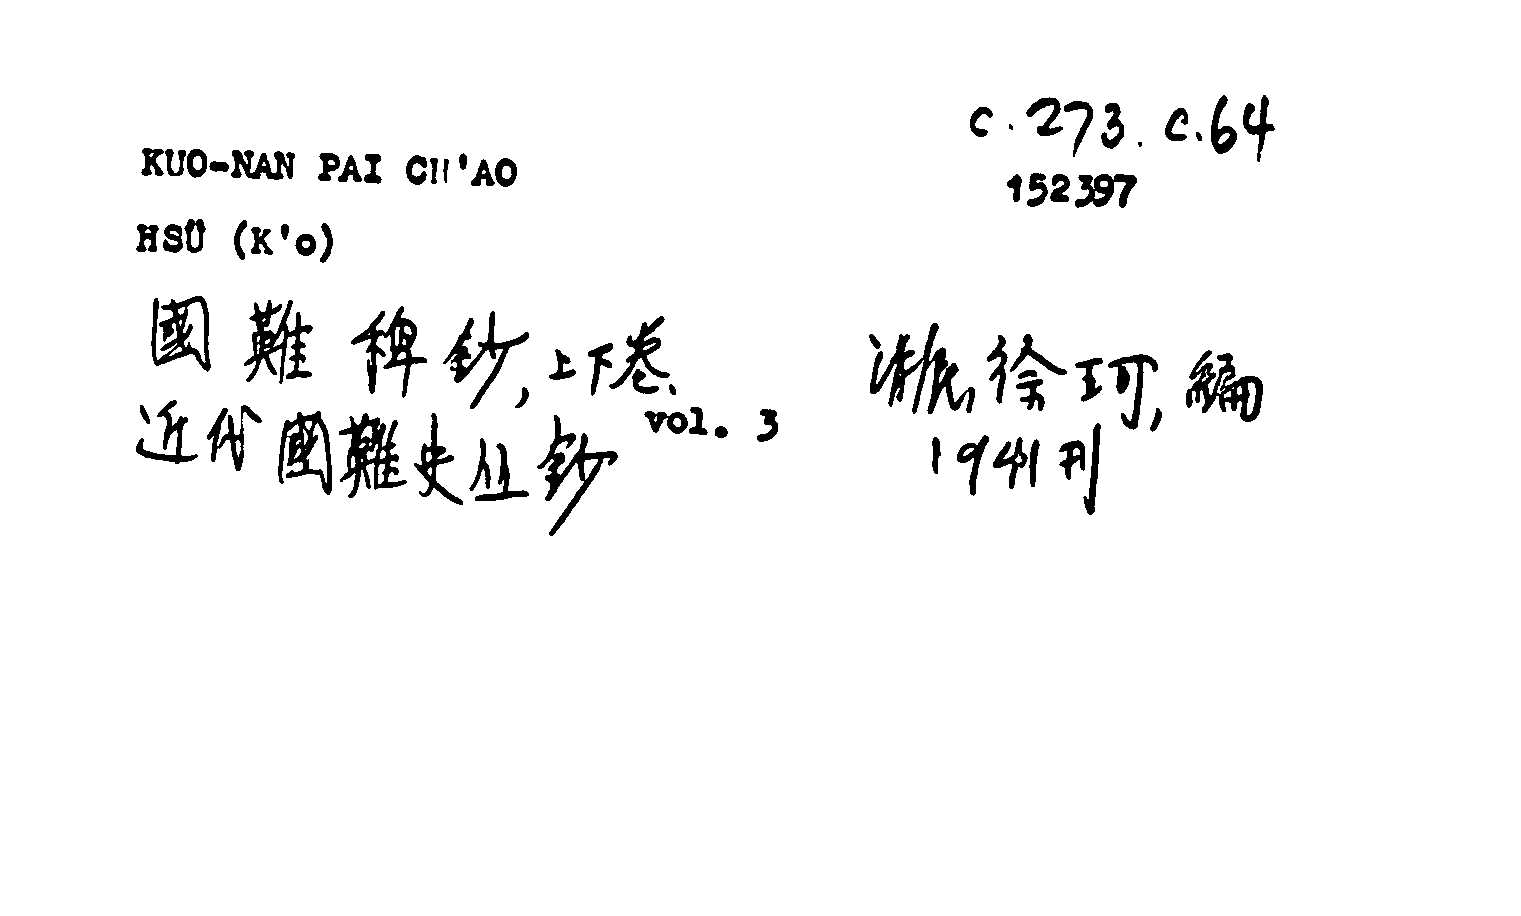 c.273.c.64
152397
KUO-NAN PAI CH'AO
HSÜ (K'o)
國難稗鈔,上下卷、
清民徐珂,編
近代國難史丛鈔 vol. 3
1941刊